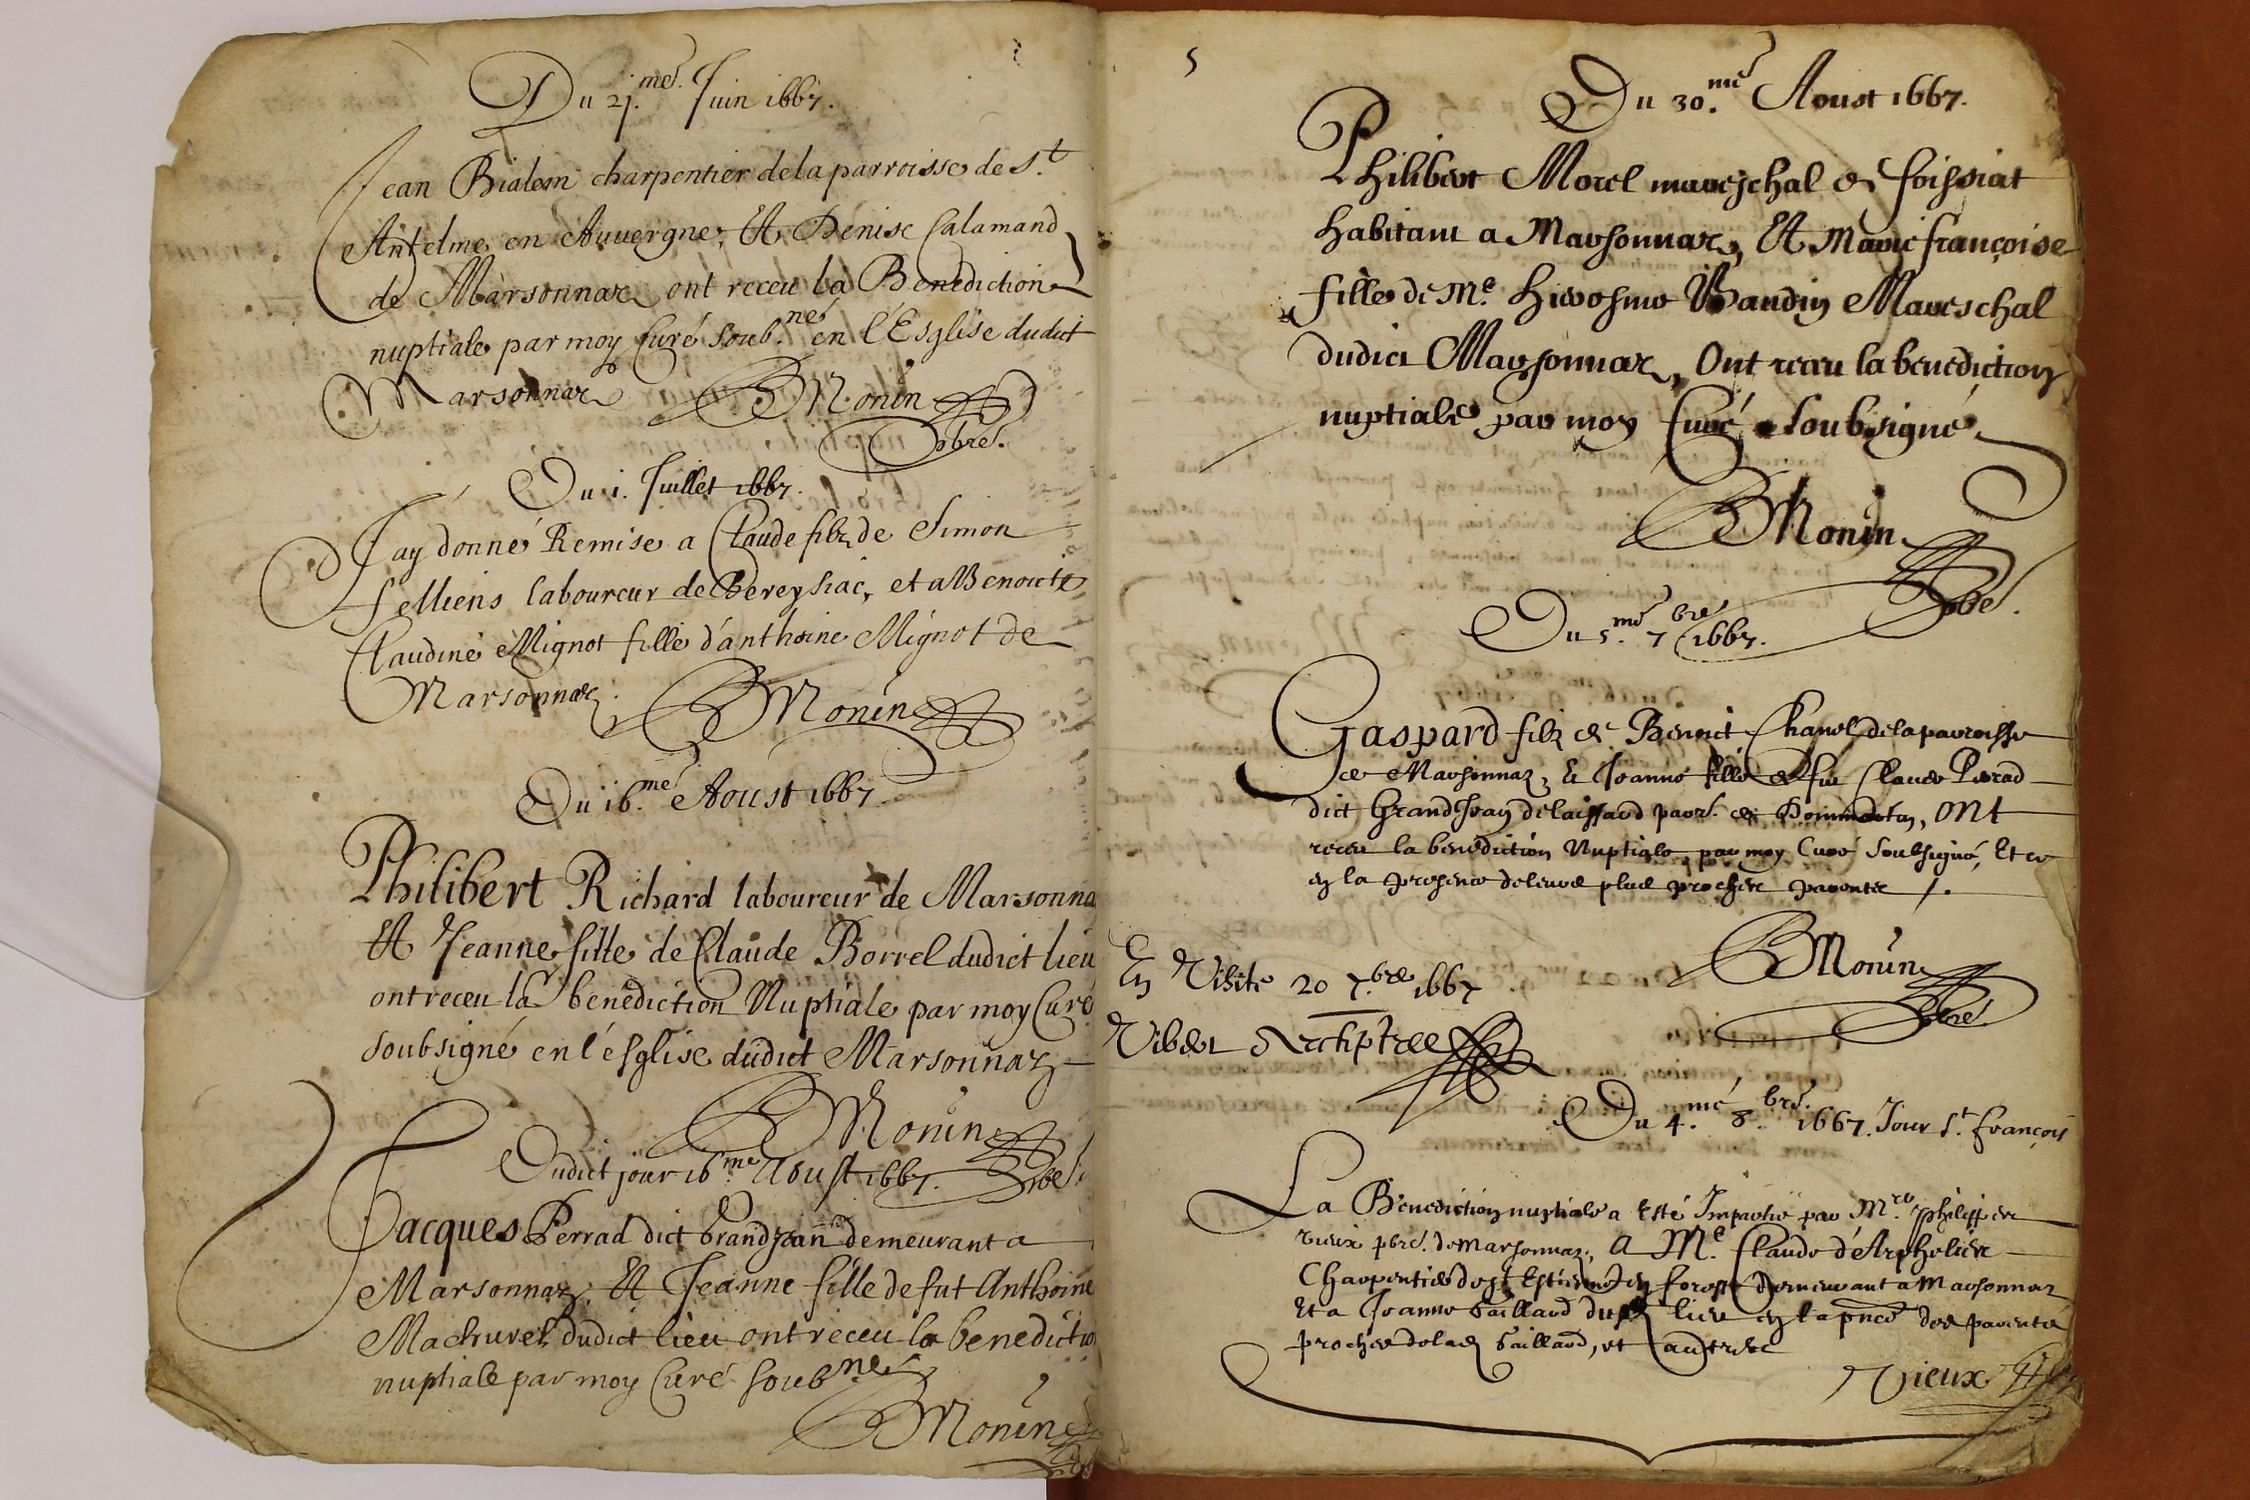 Du 21.me. Juin 1667.
Jean Bialem charpentier de la parroisse de St.
Antelme en Auuergne, Et Denise Calamand
de Marsonnaz ont receu la Benediction
nuptiale par moy Curé soub.né en l'Esglise dudict
Marsonnaz BMonin
pbre.
Du 1. Juillet 1667.
Jay donné Remise a Claude filz de Simon
felliens laboureur de Bereysiac, et a Benoicte
Claudine Mignot fille d'anthoine Mignot de
Marsonnaz. BMonin
Du 16.me Aoust 1667.
Philibert Richard laboureur de Marsonna
Et Jeanne fille de Claude Borrel dudict lieu
ont receu la benediction Nuptiale par moy Curé
soubsigné en l'esglise dudict Marsonnaz
BMonin
Dudict jour 16.me Aoust 1667. pbre.
Jacques Perrad dict Grandjean demeurant a
Marsonnaz, Et Jeanne fille de fut Anthoine
Machurel dudict lieu ont receu la benedictio
nuptiale par moy Curé soub.né
BMonin
5
Du 30.me Aoust 1667.
Philibert Morel mareschal de foissiat
habitant a Marsonnaz, Et Marie françoise
fille de Me. hierosme Baudin Mareschal
dudict Marsonnaz, Ont receu la benediction
nuptiale par moy Curé soubsigné
BMonin
pbre.
Du 5.me 7bre 1667.
Gaspard filz de Benoict Chanel de la parroisse
de Marsonnaz, Et Jeanne fille de fut Claude Perrad
dict Grandjean parr. de Dommartin, ont
receu la benediction Nuptiale par moy Curé soubsigné, Et ce
en la presence de leurs plus proches parentz /.
BMonin
pbre.
En Visite 20 7.bre 1667
Archiptre
Du 4.me 8.bre. 1667. Jour St. françois
La Benediction nuptiale a Esté Impartie par Mre. philippe
vieux pbre. de Marsonnaz, A Me. Claude
Charpentier de St Estienne en forest demeurant a Marsonnaz
Et a Jeanne Gaillard dudt lieu en la pnce des parentz
proches de lad. Gaillard, et autres
Vieux